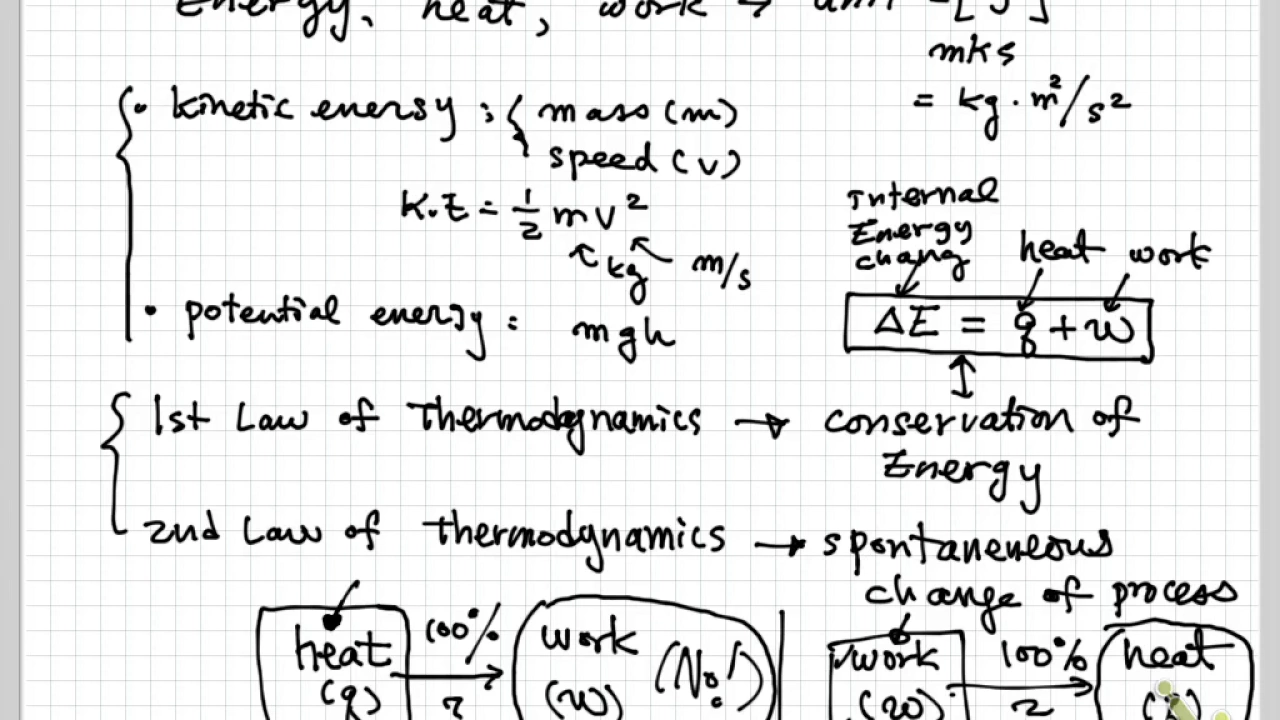 Energy, heat, work → unit = [J]
mks
= kg · m²/s²
• kinetic energy : { mass (m)
speed (v)
K.E = 1/2 mv²
kg m/s
• potential energy : mgh
Internal
Energy
chang
heat work
ΔE = q + w
1st Law of Thermodynamics → conservation of
Energy
2nd Law of Thermodynamics → spontaneneous
change of process
heat 100% work (No!)
(q) ? (w)
✓work 100% heat
(w) ?